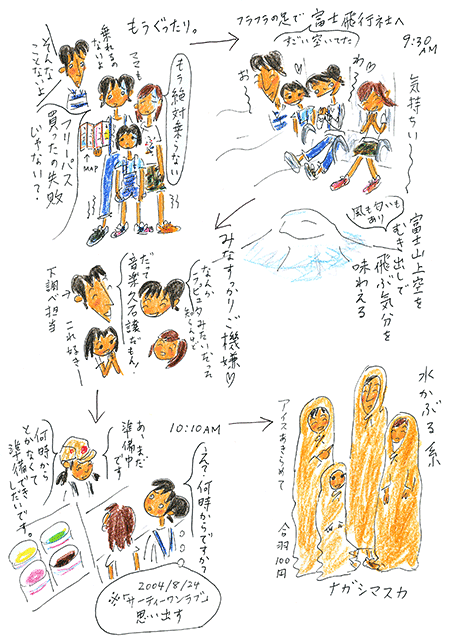 もうぐったり。
乗れるの
ないよ
ママも
そんな
ことないよ
もう絶対乗らない
フリーパス
買ったの失敗
じゃない？
MAP
フラフラの足で富士飛行社へ
すごい空いてた
9:30
AM
お
わ♡
気持ちいー
風も匂いも
あり
富士山上空を
むき出しで
飛ぶ気分を
味わえる
みなすっかりご機嫌♡
なんか
ラピュタみたいだった
だって
音楽久石譲だもん！
下調べ担当
これ好きー
10:10AM
あ、まだ
準備中
です
何時から
とかなくて
準備でき
しだいです。
え？何時からですか？
2004/8/24
※「サーティーワンラブ」
思い出す
水かぶる系
アイスあきらめて
合羽100円
ナガシマスカ